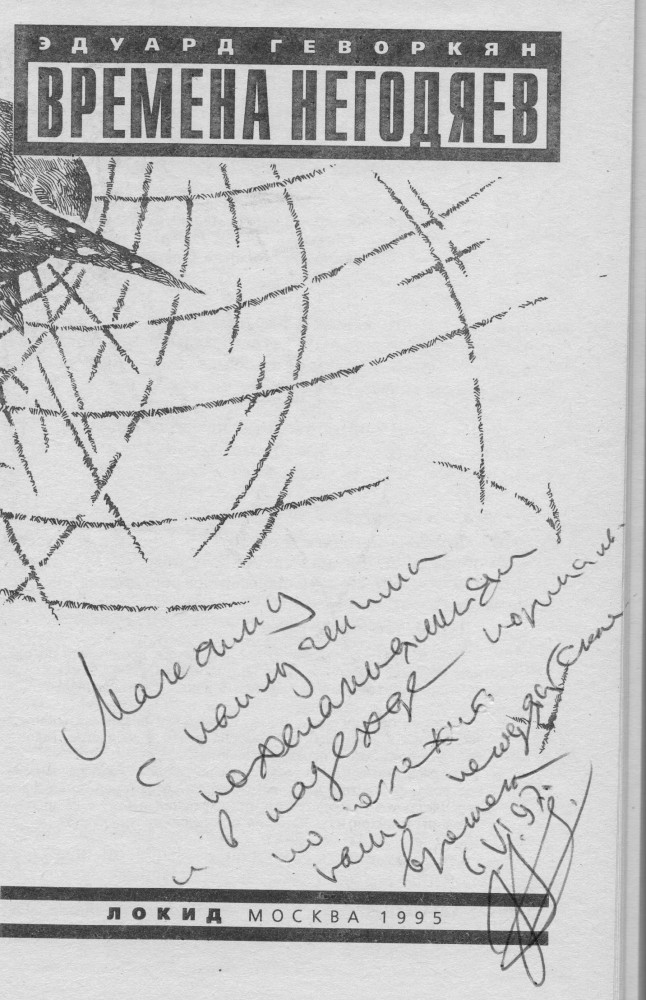 ЭДУАРД ГЕВОРКЯН
ВРЕМЕНА НЕГОДЯЕВ
Максиму
с наилучшими
пожеланиями
и в надежде нормаль-
но пережить
наши негодяйские
времена
6.VI.97.
ЛОКИД МОСКВА 1995